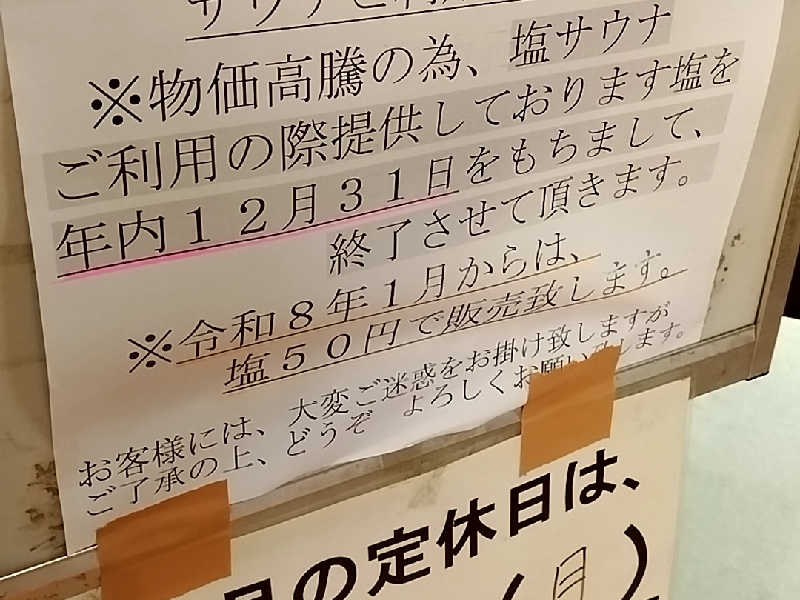 サウナご利用
※物価高騰の為、塩サウナ
ご利用の際提供しております塩を
年内12月31日をもちまして、
終了させて頂きます。
※令和8年1月からは、
塩50円で販売致します。
お客様には、大変ご迷惑をお掛け致しますが
ご了承の上、どうぞ よろしくお願い致します。
月の定休日は、
(月)